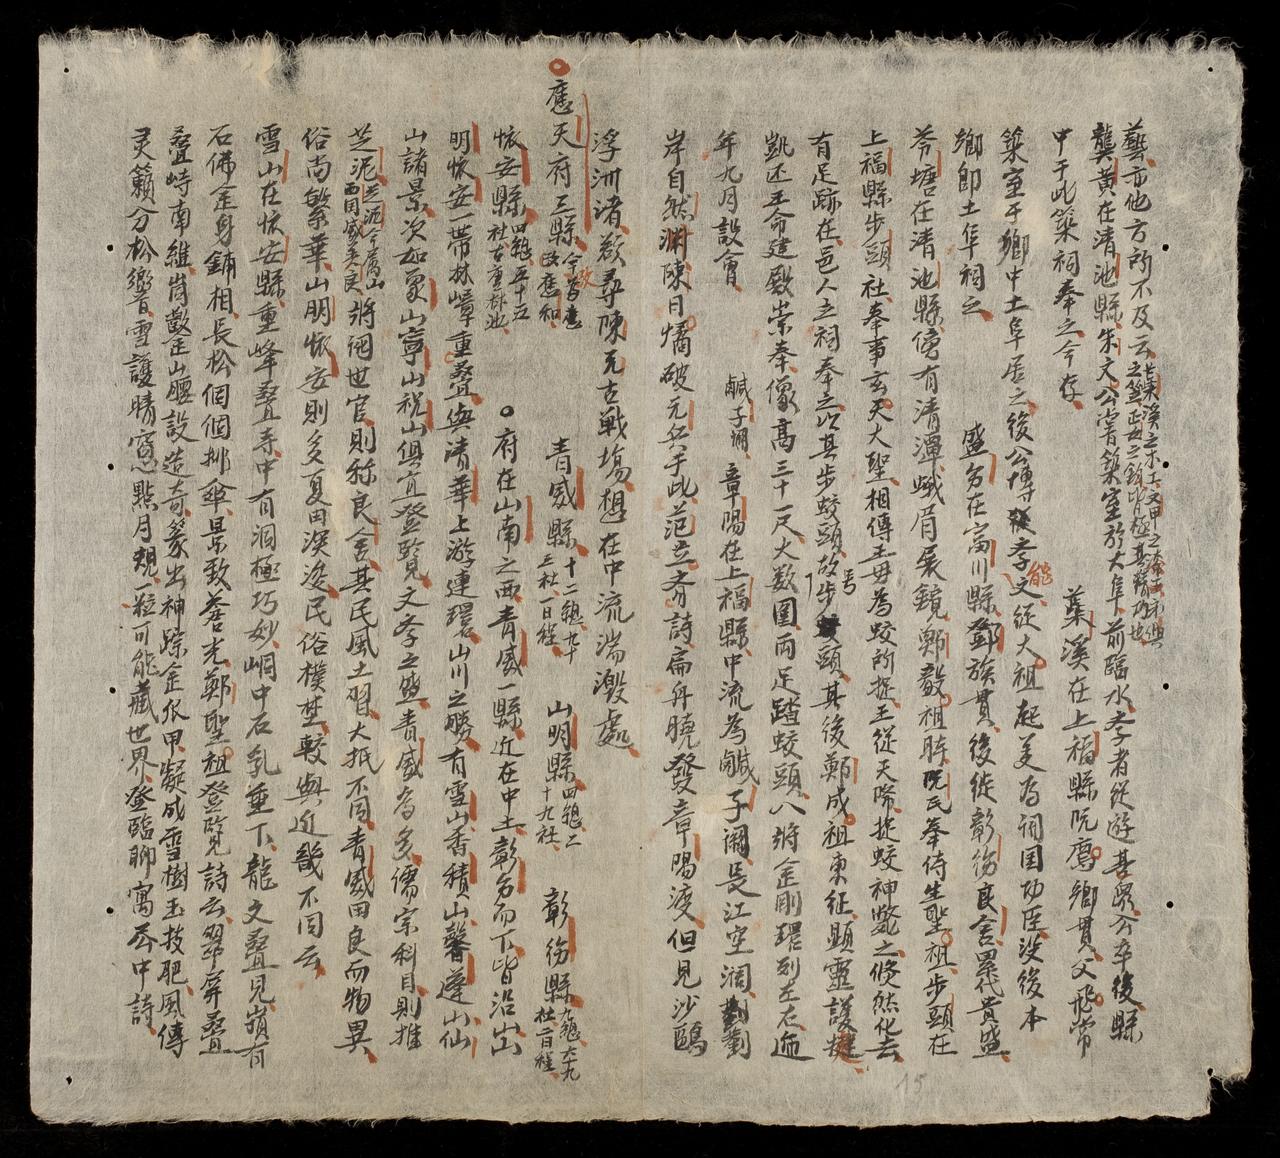 藝亦他方所不及云 長葉溪之木工文甲之漆工布政之笠正玄之鎖皆極其精巧也
龔黄在清池縣朱文公嘗築室於大阜前臨水李者從遊甚眾公卒後縣
中于此築祠奉之今存 葉溪在上福縣阮鷹鄉貫父飛常
築室于鄉中土阜居之後公博李文從大祖起美為詞国功臣没後本
鄉即土阜祠之 盛名在富川縣鄧族貫後徙彰俊良舍累代貴盛
芩塘在清池縣傍有清潭蛾眉展鏡鄭毅祖聘阮氏奉侍生聖祖步頭在
上福縣步頭社奉事玄天大聖相傳王毋為蛟所捉王從天際捉蛟神斃之倏然化去
有足跡在邑人立祠奉之以其步蛟頭故号步頭其後鄭成祖東征顯靈護
凱还王命建殿崇奉像高三十一尺大数圍両足踏蛟頭八將金剛環列左右逓
年九月設會 鹹子澗章陽在上福縣中流為鹹子澗長江空澗劉
岸自然渊陳日燏破元兵于此范立齐詩扁舟曉發章陽渡但見沙鷗
浮洲渚欲尋陳元古戦塲想在中流湍激處
應天府三縣 今改為應和 青威縣 十二總九十三社一日程 山明縣 四總二十九社 彰俊縣 九總六十九社二日程
懷安縣 四總五十五社古重林池 府在山南之西青威一縣近在中土彰名而下皆沿出
明懷安一帯林嶂重疊與清華上游連環山川之勝有雪山香積山馨蓬山仙
山諸景次如象山寧山祝山俱宜登覧文李之盛青威為多儒宗科目則推
芝泥 芝泥今屬山西国威美良 將相世官則称良舍其民風土習大抵不同青威田良而物異
俗尚繁華山明懷安則多夏田深浚民俗樸埜較與近畿不同云
雪山在懷安縣重峰疊寺中有洞極巧妙峒中石乳垂下龍文疊見嵿有
石佛金身鋪相長松個個挪傘景致蒼光鄭聖祖登覧詩云翠屏疊
疊峙南維嵿豁歪山腰設造奇篆出神踪金爪甲凝成雪樹玉技肥風傳
灵籟分松響雪護晴窓點月規一粒可能藏世界登臨聊寓不中詩
15